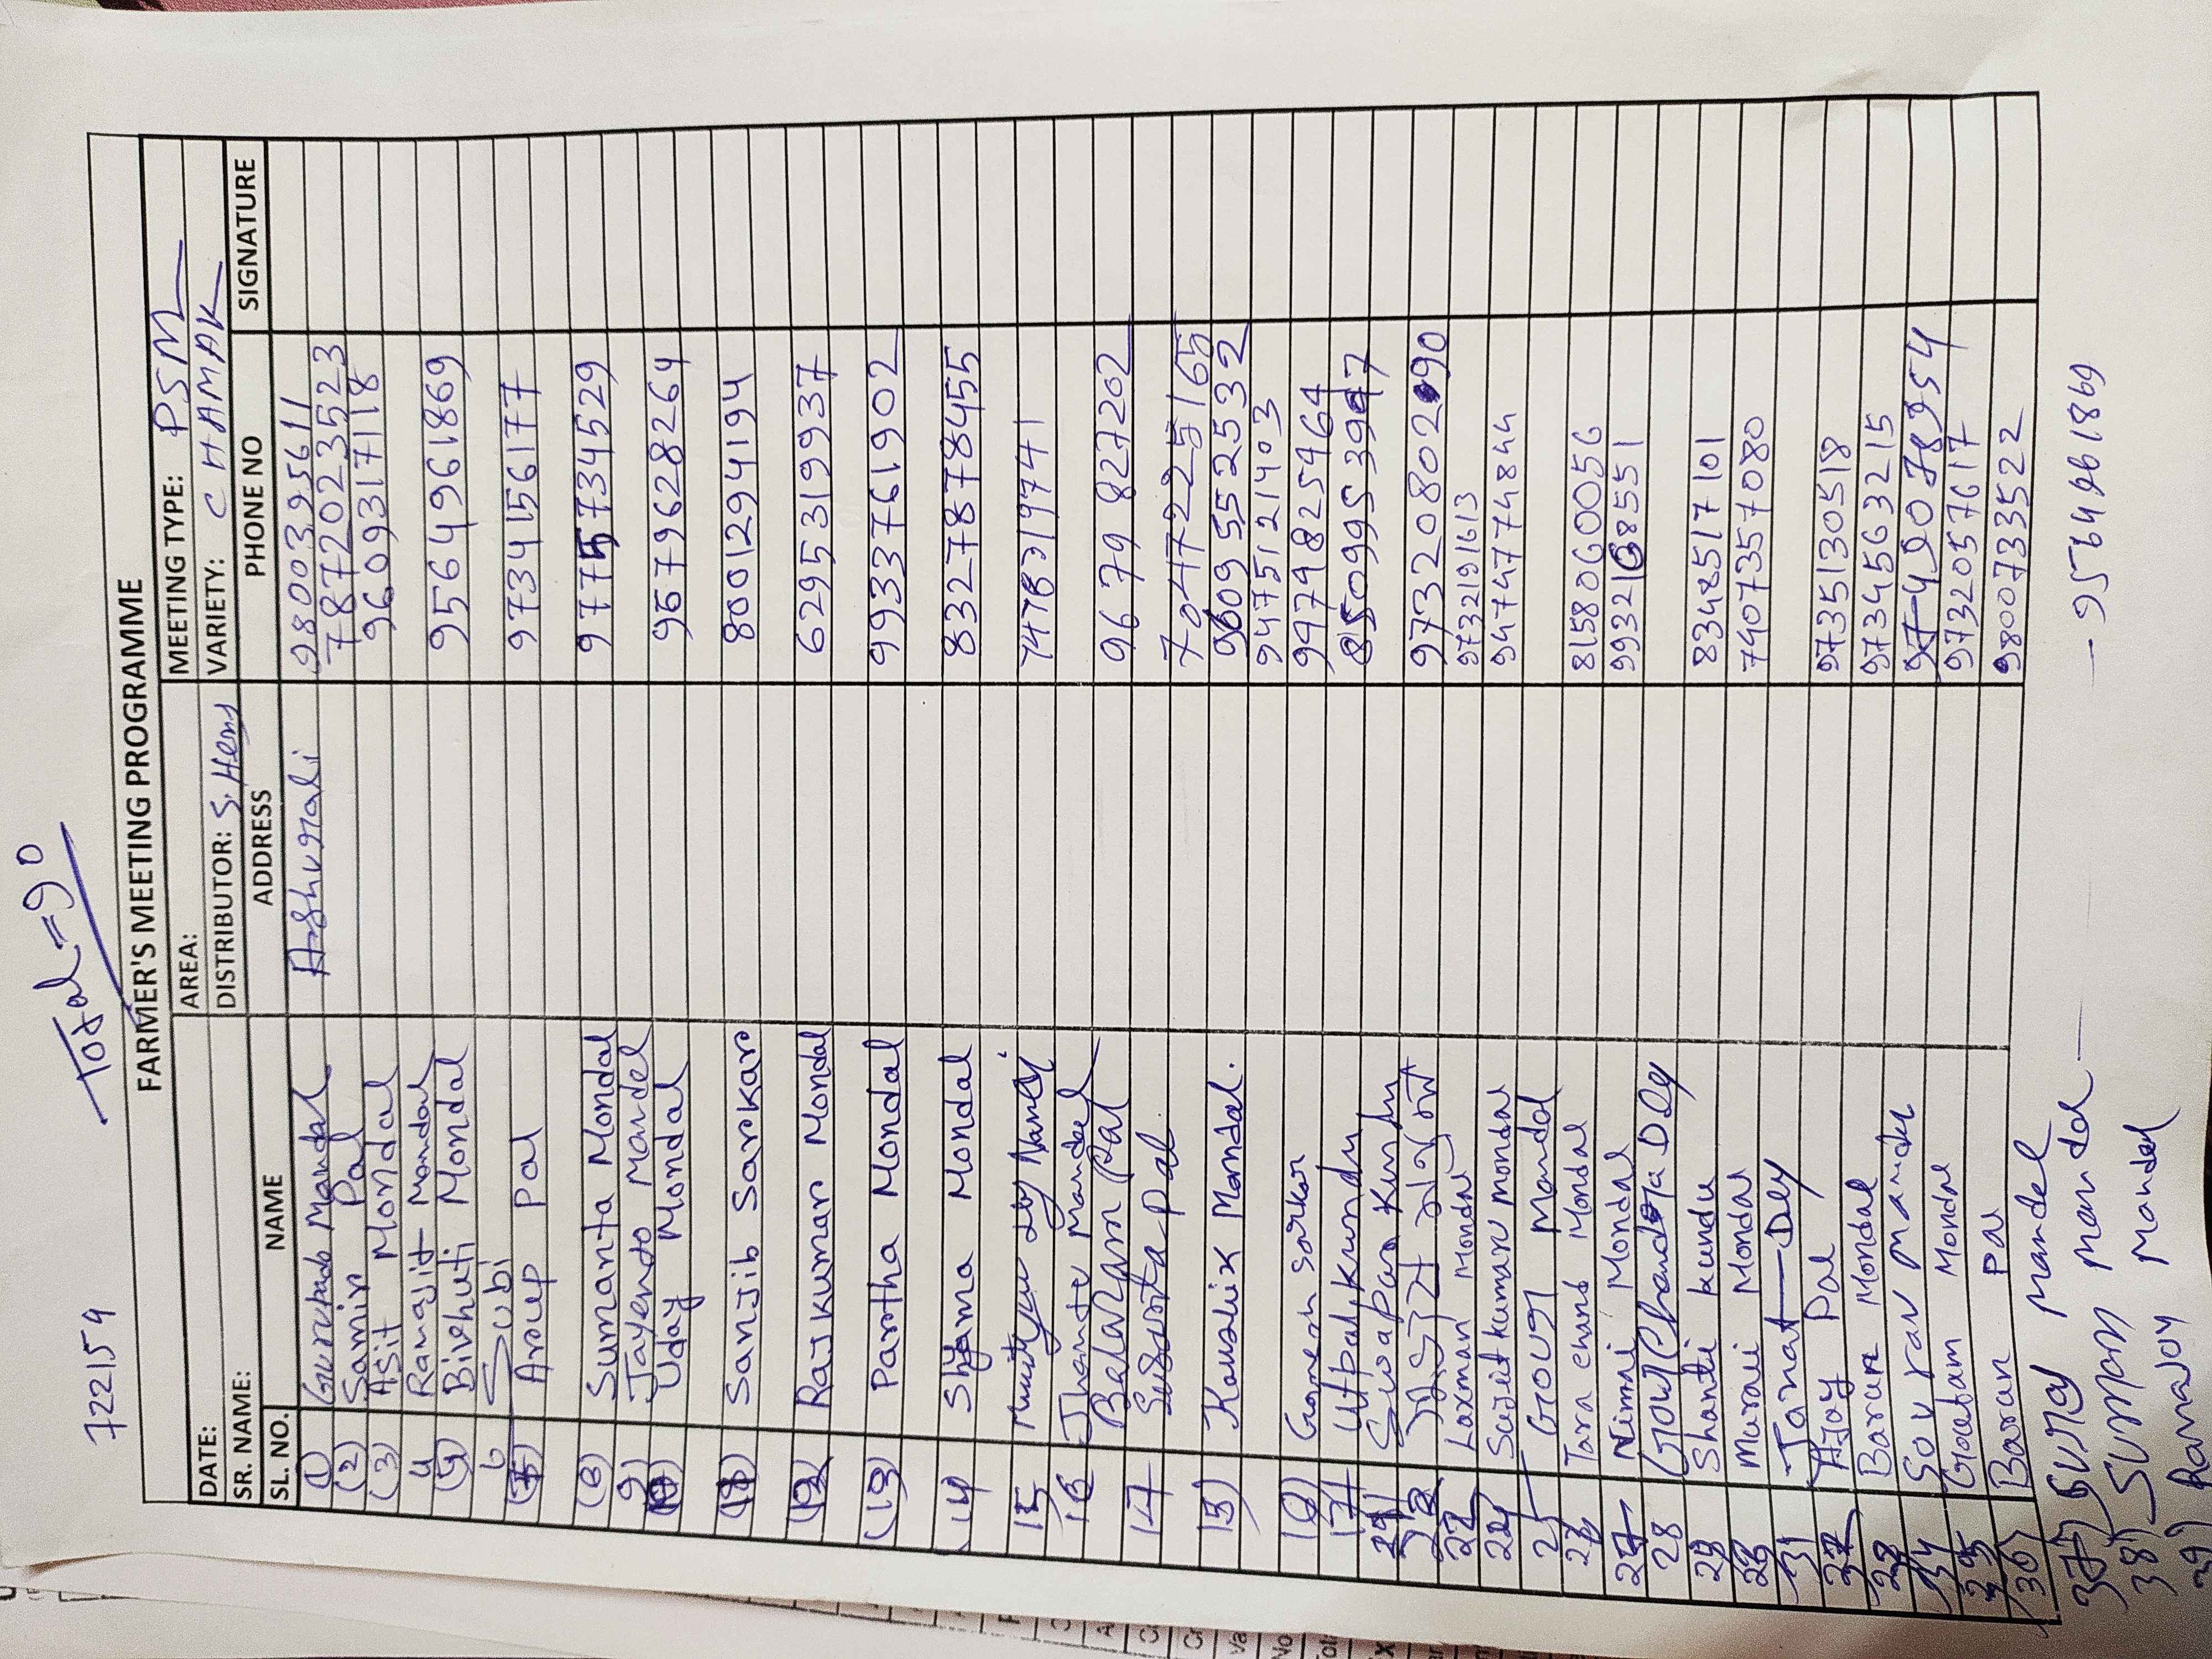 Total = 90
722159
FARMER'S MEETING PROGRAMME
DATE: AREA: MEETING TYPE: PSM
SR. NAME: DISTRIBUTOR: S. VARIETY: CHAMAK
SL. NO. NAME ADDRESS PHONE NO SIGNATURE
(1) Gurupado Mandal Ashurali 9800395611
(2) Samir Pal 7872023523
(3) Asit Mondal 9609317118
4 Ramajit Mondal
(5) Bivhuti Mondal 9564961869
6 Subi
(7) Arup Pal 9734156177
(8) Sumanta Mondal 9775734529
9) Jayendo Mandel
(10) Uday Mondal 9679628264
(11) Sanjib Sarkar 8001294194
(12) Rajkumar Mondal 6295319937
(13) Partha Mondal 9933761902
(14 Shyama Mondal 8327878455
15 Nandi
16 Jhantu Mandal
Balaram Pal 9679827202
17 Subrata Pal
7047225165
15) Kouslix Mandal. 9609552532
9475121403
16) Gonesh Sarkar 9979825464
17) Utpal Kundu
Swapan Kundu
9732080290
22 Laxman Mondal 9732191613
24 Sujit kumar mondal 9474774844
25 Gour Mondal
Tara chand Mondal 8158060056
27 Nimai Mondal
28 Gour Chandra Dey
Shanti kundu 8348517101
Murari Mondal 7407357080
31 Janat Dey
32 Ajoy Pal 9735130518
Barun Mondal 9734563215
34 Sourav Mandal
35 Goutam Mondal 9732057617
36) Baran Pal 9800733522
37) Suroj Mandel
38) Suman Mandal
Ramajoy Mandal